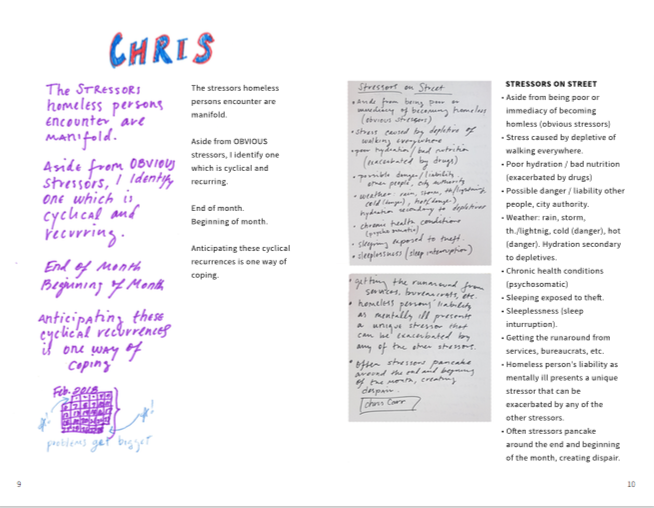 CHRIS
The STRESSORS
homeless persons
encounter are
manifold.
Aside from OBVIOUS
stressors, I identify
one which is
cyclical and
recurring.
End of Month
Beginning of Month
Anticipating these
cyclical recurrences
is one way of
coping
Feb. 2018
problems get bigger
9
The stressors homeless
persons encounter are
manifold.
Aside from OBVIOUS
stressors, I identify one
which is cyclical and
recurring.
End of month.
Beginning of month.
Anticipating these cyclical
recurrences is one way of
coping.
Stressors on Street
• Aside from being poor or
immediacy of becoming homeless
(obvious stressors)
• stress caused by depletive of
walking everywhere
• poor hydration / bad nutrition
(exacerbated by drugs)
• possible danger / liability
other people, city authority
• weather: rain, storm, th/lightning,
cold (danger), hot (danger).
hydration secondary to depletives
• chronic health conditions
(psychosomatic)
• sleeping exposed to theft.
• sleeplessness (sleep interruption)
• getting the runaround from
services, bureaucrats, etc.
• homeless persons' liability
as mentally ill presents
a unique stressor that
can be exacerbated by
any of the other stressors.
• often stressors pancake
around the end and beginning
of the month, creating
despair.
STRESSORS ON STREET
• Aside from being poor or
immediacy of becoming
homless (obvious stressors)
• Stress caused by depletive of
walking everywhere.
• Poor hydration / bad nutrition
(exacerbated by drugs)
• Possible danger / liability other
people, city authority.
• Weather: rain, storm,
th./lightnig, cold (danger), hot
(danger). Hydration secondary
to depletives.
• Chronic health conditions
(psychosomatic)
• Sleeping exposed to theft.
• Sleeplessness (sleep
interuption).
• Getting the runaround from
services, bureaucrats, etc.
• Homeless person's liability as
mentally ill presents a unique
stressor that can be
exacerbated by any of the
other stressors.
• Often stressors pancake
around the end and beginning
of the month, creating dispair.
10